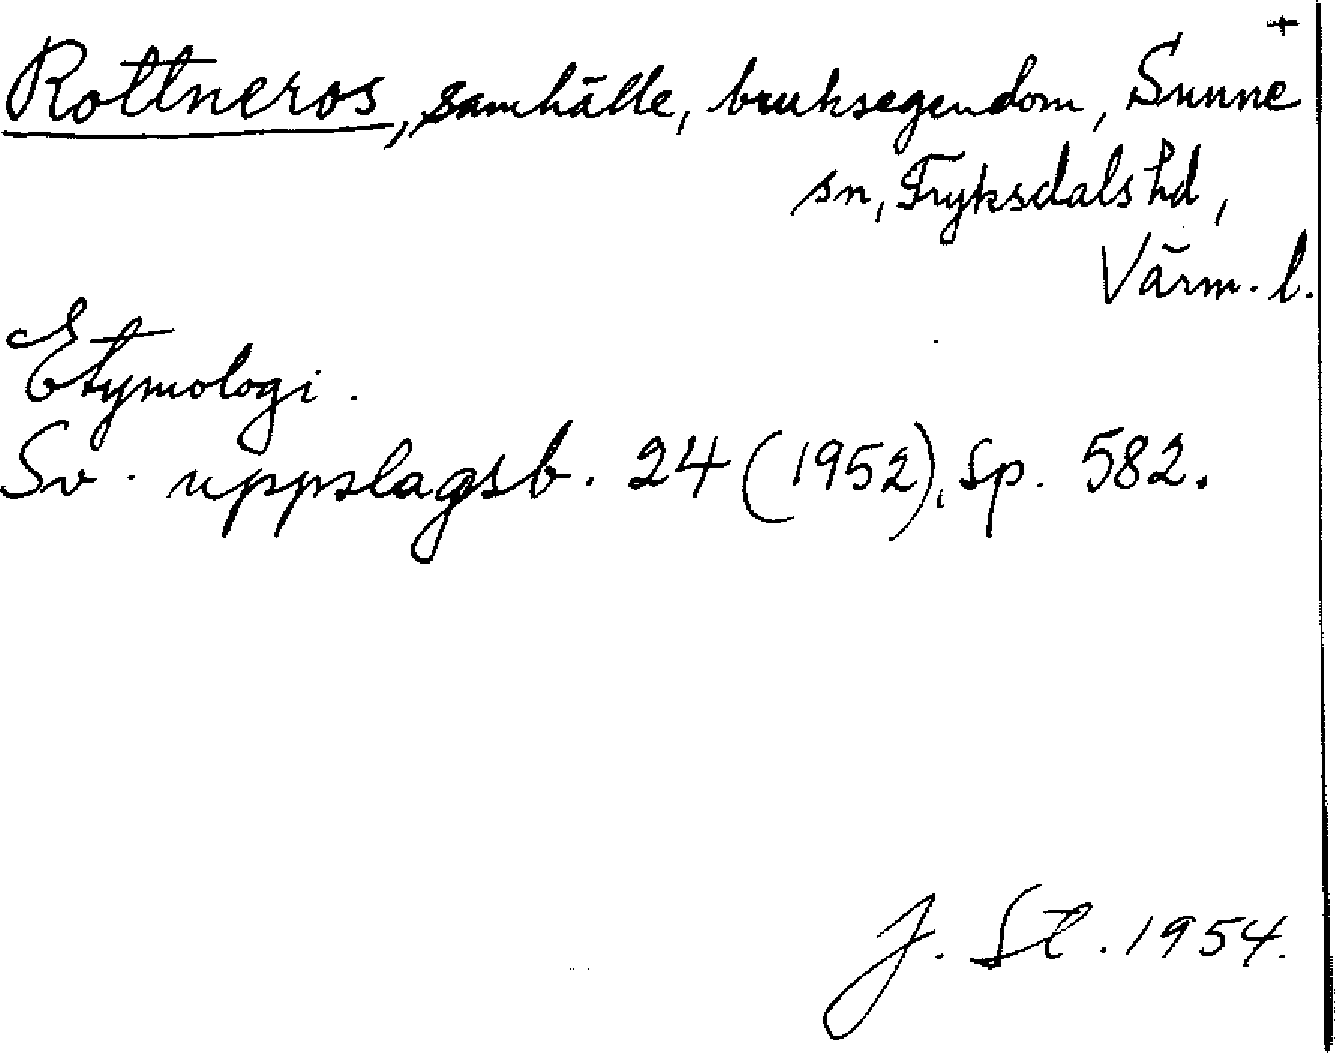 +
Rottneros, samhälle, bruksegendom, Sunne
sn, Fryksdals hd,
Värm. l.
Etymologi.
Sv. uppslagsb. 24 (1952), sp. 582.
J. St. 1954.